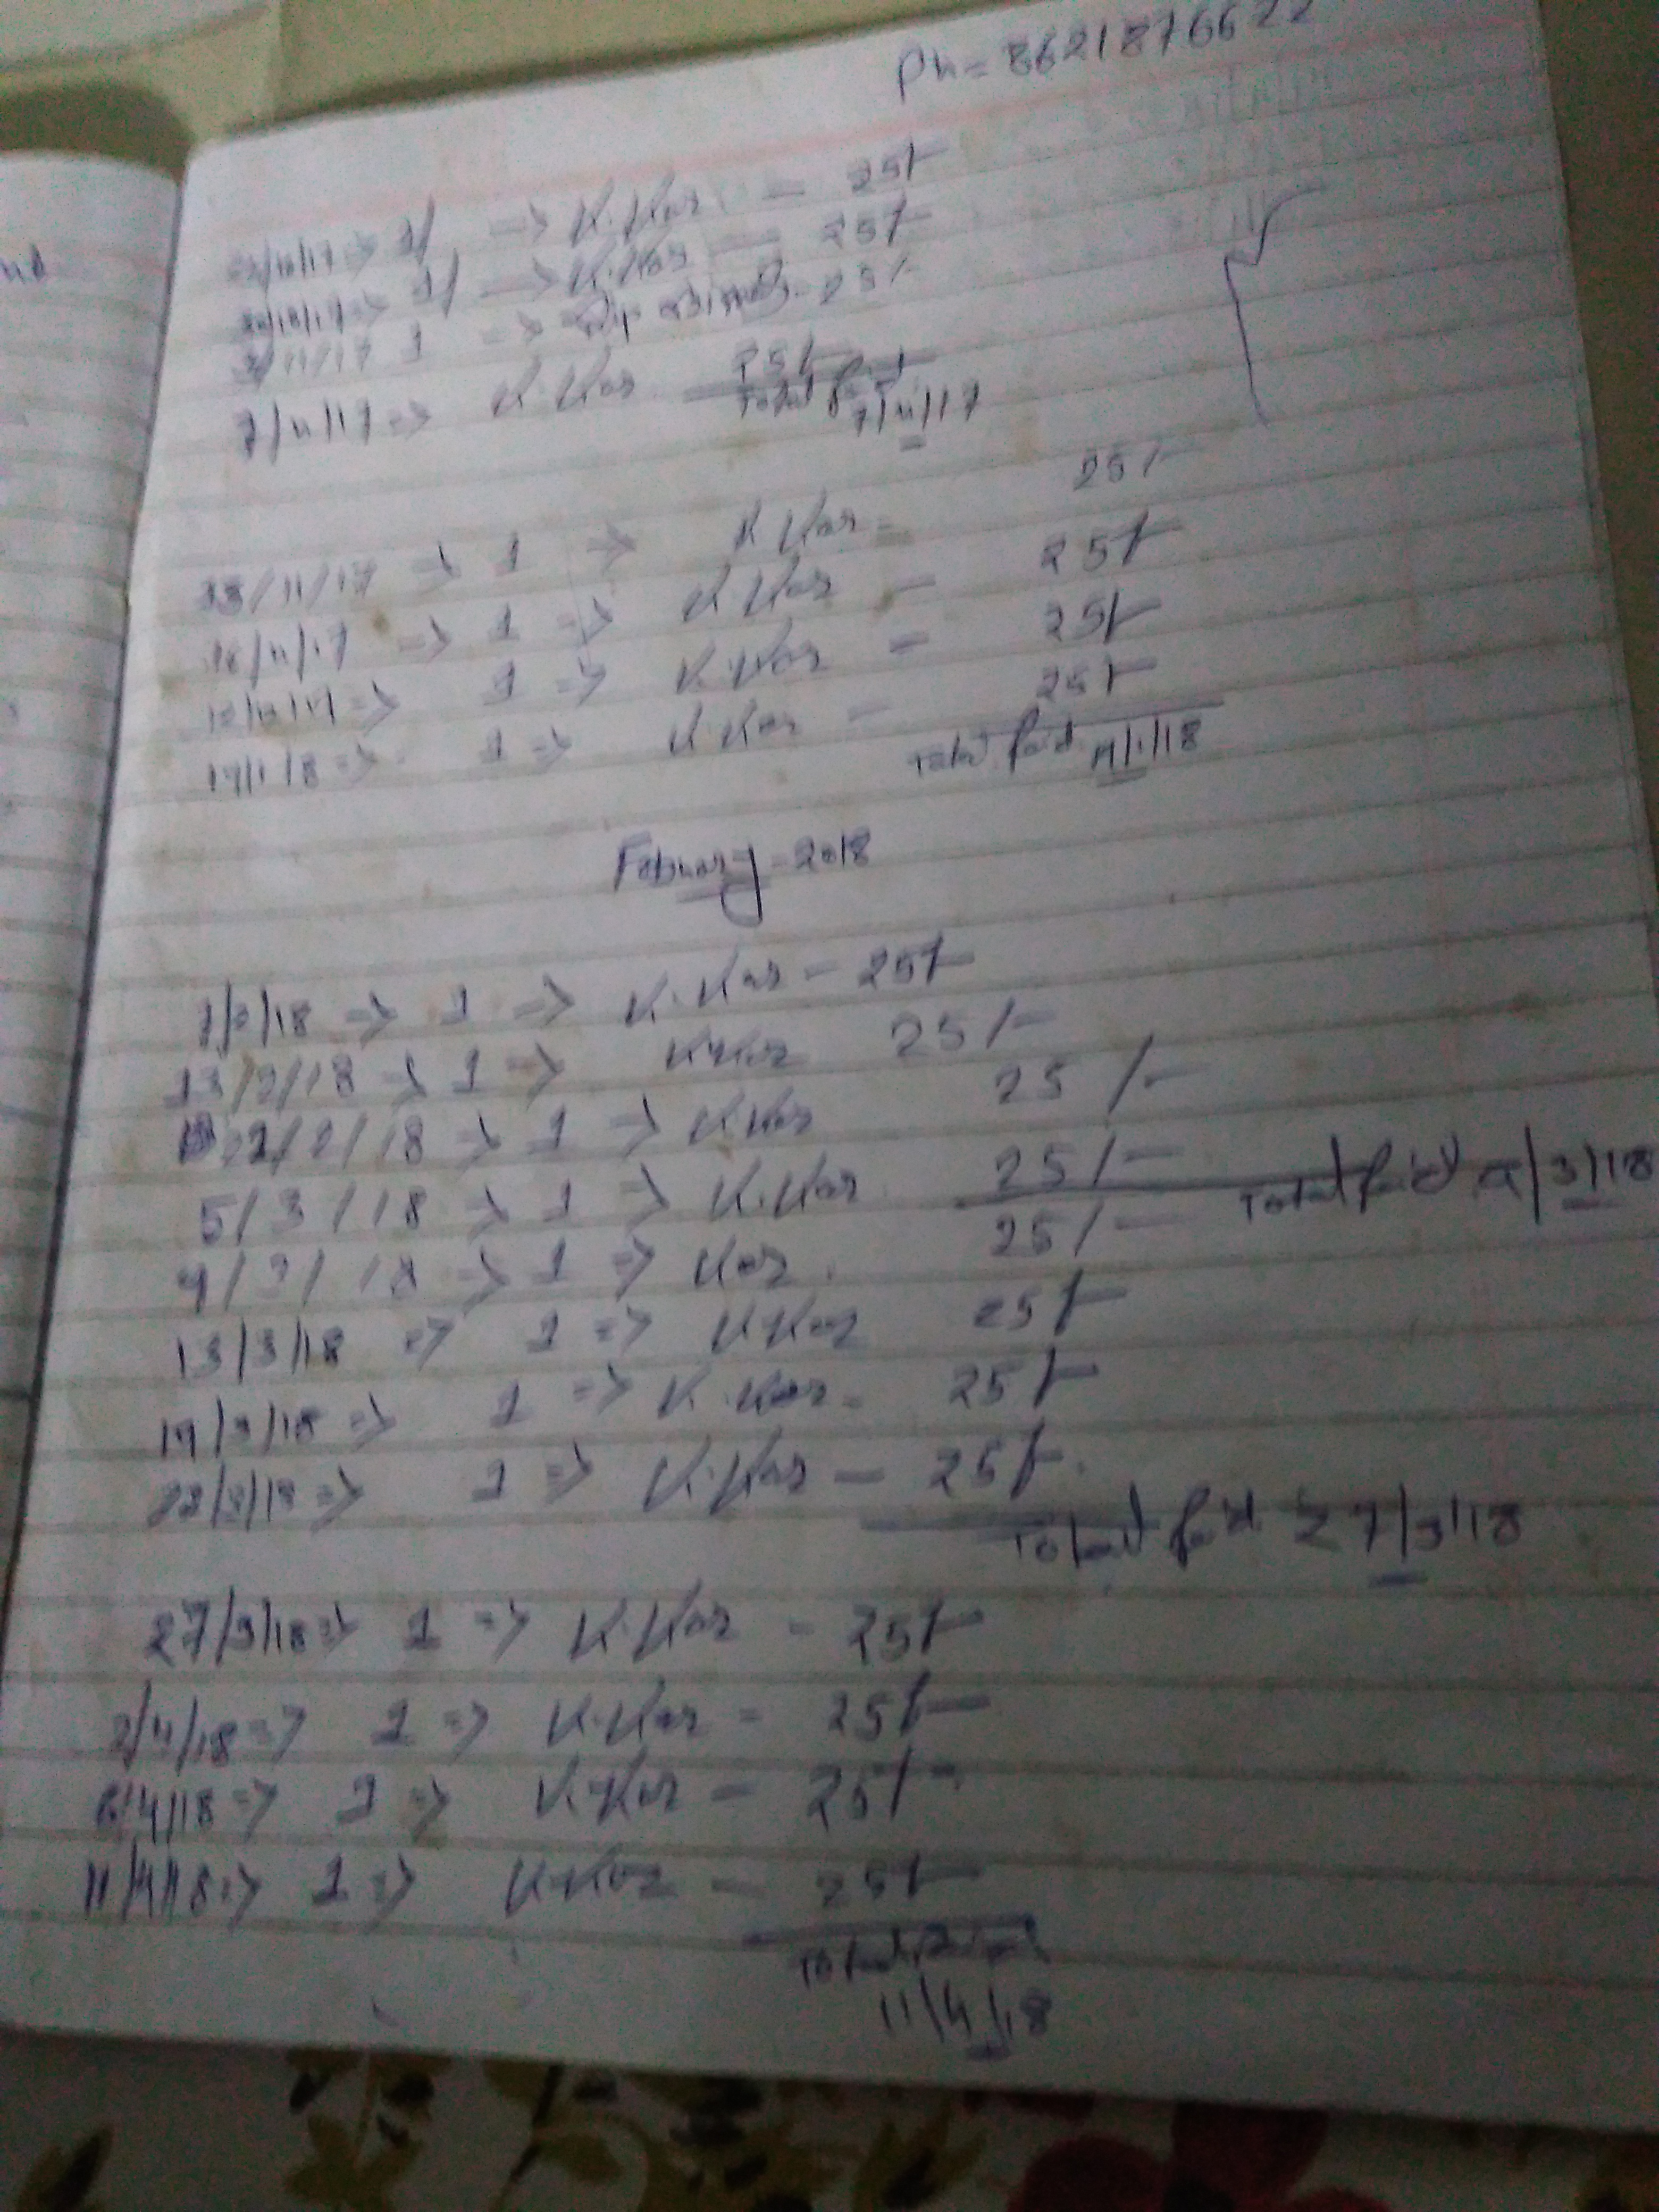 Ph = 8621876622
/10/17 => 1/ => K.Kar - 25/-
/17 => 1/ => K.Kar - 25/-
3/11/17 1 => - 25/-
7/11/17 => K.Kar 25/-
Total paid
7/11/17
13/11/17 => 1 => K Kar = 25/-
/11/17 => 1 => K Kar - 25/-
=> 1 => K.Kar = 25/-
17/1/18 => 1 => K.Kar - 25/-
Total paid /1/18
Febuary - 2018
/18 => 1 => K.Kar - 25/-
13/2/18 => 1 => K.Kar 25/-
/2/18 => 1 => K.Kar 25/-
5/3/18 => 1 => K.Kar 25/-
Total paid /3/18
/18 => 1 => Kar. 25/-
13/3/18 => 1 => K.Kar 25/-
/3/18 => 1 => K.Kar - 25/-
/3/18 => 1 => K.Kar - 25/-
Total paid 27/3/18
27/3/18 => 1 => K.Kar - 25/-
2/4/18 => 1 => K.Kar - 25/-
6/4/18 => 1 => K.Kar - 25/-
11/4/18 => 1 => K.Kar - 25/-
Total paid
11/4/18